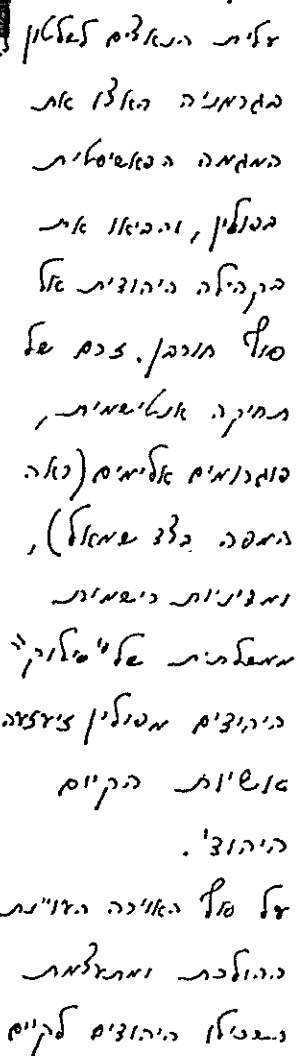 עלית הנאצים לשלטון
בגרמניה האצו את
המגמה הפאשיסטית
בפולין, והביאו את
הקהילה היהודית אל
סף חורבן. זרם של
תחיקה אנטישמית,
פוגרומים אלימים (ראה
המפה בצד שמאל),
ומדיניות רישמית
ממשלתית של "סילוק"
היהודים מפולין זיעזעה
אושיות הקיום
היהודי.
על סף האוירה העויינת
ההולכת ומתעצמת
השכילו היהודים לקיים